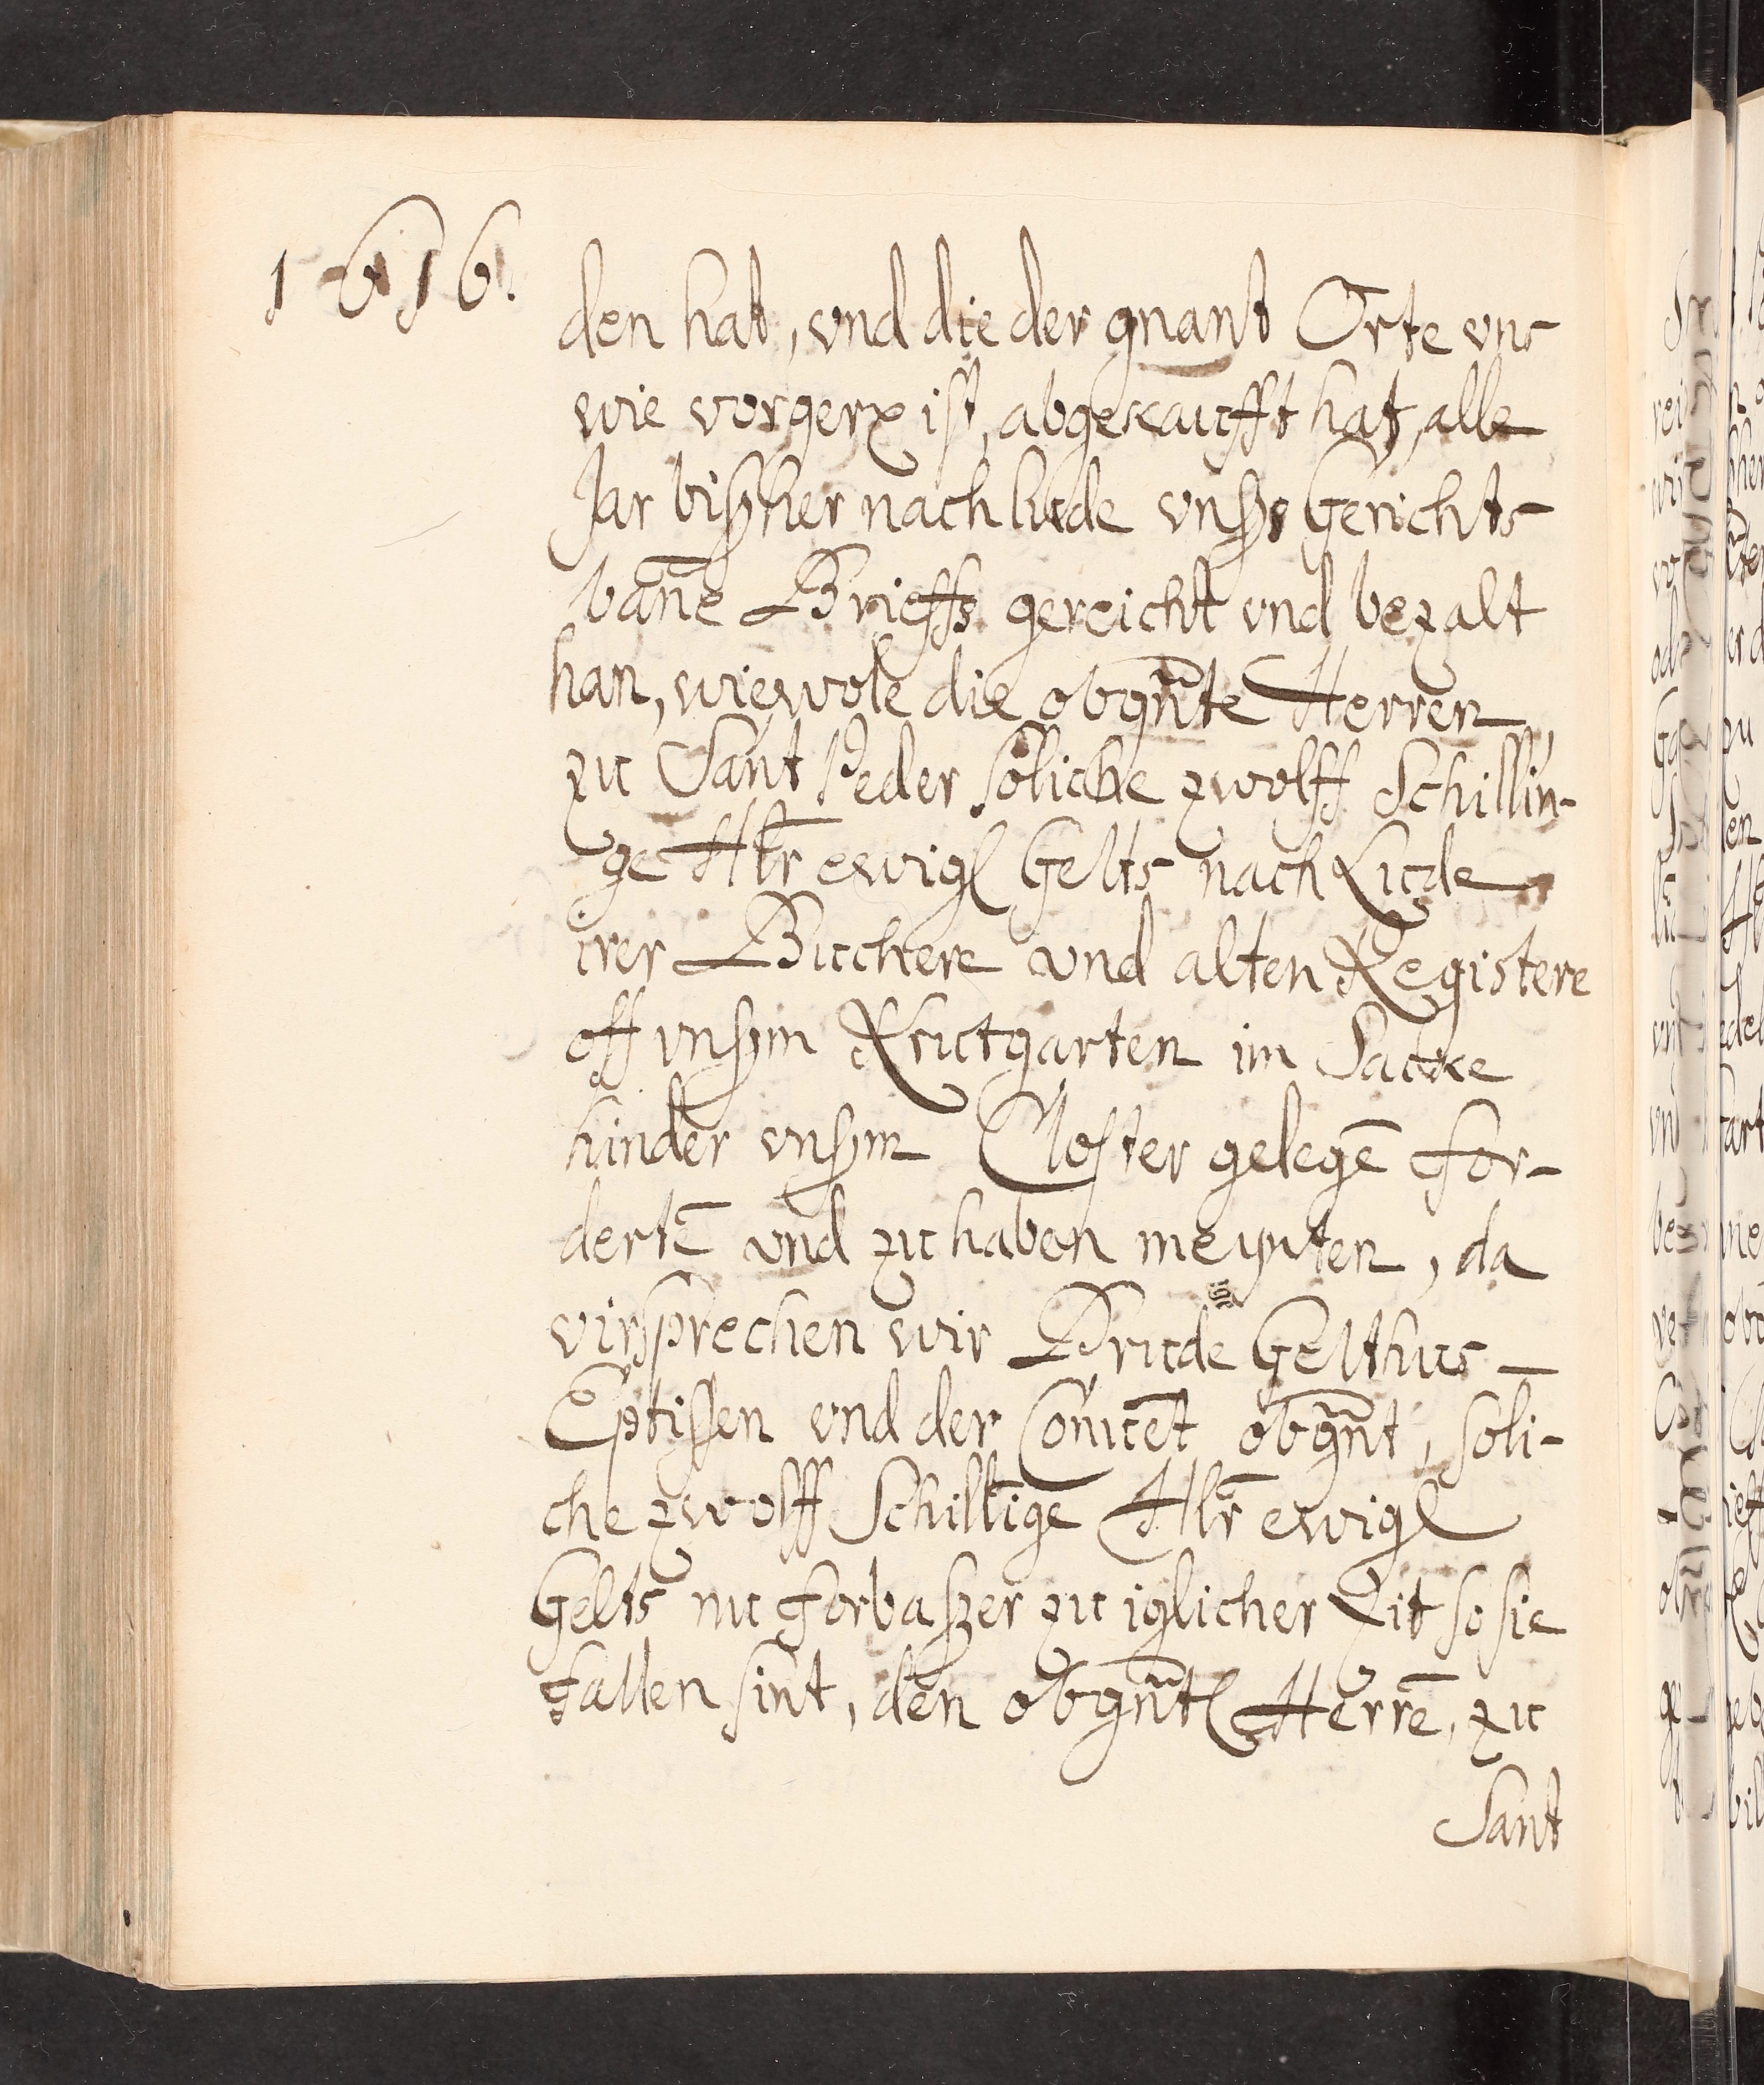 1616.
den hat, vnd die der gnant Orte vns
wie vorgerx ist, abgekaufft hat, alle
Jar bißher nach lude vnßs Gerichts
bañe Brieffs gereicht vnd bezalt
han, wiewole die obgñte Herren
zu Sant Peder soliche zwolff Schillin-
ge Hlr̄ ewigl Gelts nach Lude
irer Buchere vnd alten Registere
off vnßm Krutgarten im Sacke
hinder vnßm Closter gelegē for-
dertē vnd zu haben meynten, da
virsprechen wir Drude Gelthus
Eptissen vnd der Cōnuēt obgñt, soli-
che zwolff Schillīge Hlr̄ ewigl
Gelts nu forbaßer zu iglicher Zit so sie
fallen sint, den obgñtl Herrē, zu
Sant